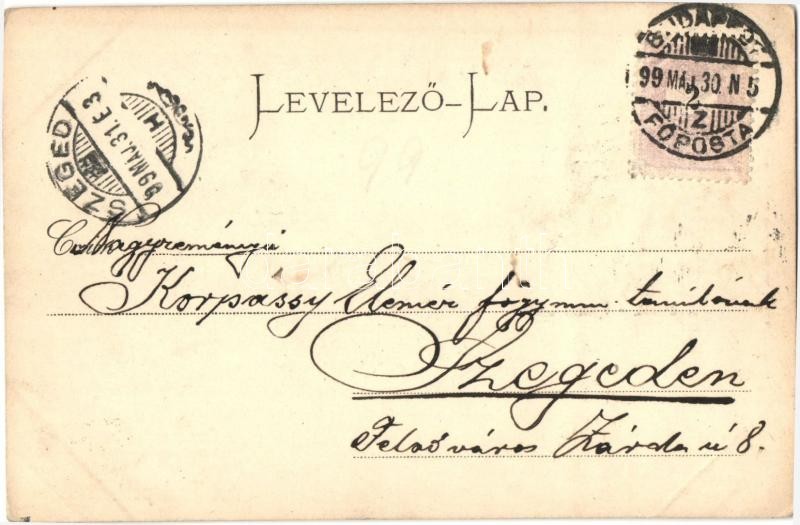 LEVELEZŐ-LAP.
BUDAPEST
99 MÁJ. 30. N 5
2
Z
FŐPOSTA
SZEGED
99 MÁJ. 31. É 3
99
Nagyreményű
Korpássy Elemér főgymn tanulónak
Szegeden
Felsőváros Zárda ú 8.